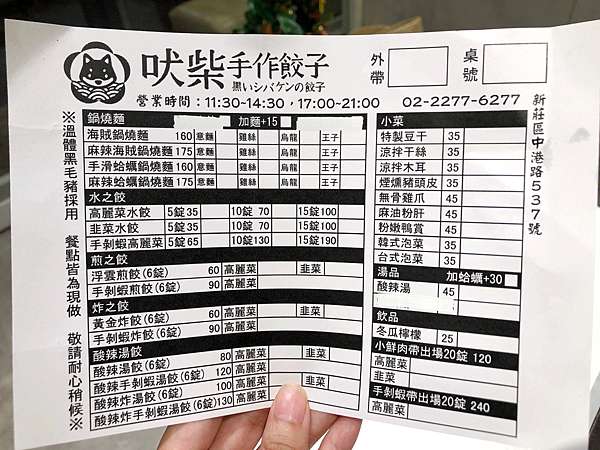 吠柴手作餃子
黒いシバケンの餃子
外帶
桌號
營業時間：11:30~14:30，17:00~21:00 02-2277-6277
新莊區中港路537號
※溫體黑毛豬採用 餐點皆為現做 敬請耐心稍候※
鍋燒麵 加麵+15
海賊鍋燒麵 160 意麵 雞絲 烏龍 王子
麻辣海賊鍋燒麵 175 意麵 雞絲 烏龍 王子
手滑蛤蠣鍋燒麵 160 意麵 雞絲 烏龍 王子
麻辣蛤蠣鍋燒麵 175 意麵 雞絲 烏龍 王子
水之餃
高麗菜水餃 5錠35 10錠 70 15錠100
韭菜水餃 5錠35 10錠 70 15錠100
手剝蝦高麗菜 5錠65 10錠130 15錠190
煎之餃
浮雲煎餃(6錠) 60 高麗菜 韭菜
手剝蝦煎餃(6錠) 90 高麗菜
炸之餃
黃金炸餃(6錠) 60 高麗菜 韭菜
手剝蝦炸餃(6錠) 90 高麗菜
酸辣湯餃
酸辣湯餃(6錠) 80 高麗菜 韭菜
酸辣手剝蝦湯餃(6錠) 120 高麗菜
酸辣炸湯餃(6錠) 100 高麗菜 韭菜
酸辣炸手剝蝦湯餃(6錠) 130 高麗菜
小菜
特製豆干 35
涼拌干絲 35
涼拌木耳 35
煙燻豬頭皮 35
無骨雞爪 45
麻油粉肝 45
粉嫩鴨賞 45
韓式泡菜 35
台式泡菜 35
湯品 加蛤蠣+30
酸辣湯 45
飲品
冬瓜檸檬 25
小鮮肉帶出場20錠 120
高麗菜
韭菜
手剝蝦帶出場20錠 240
高麗菜